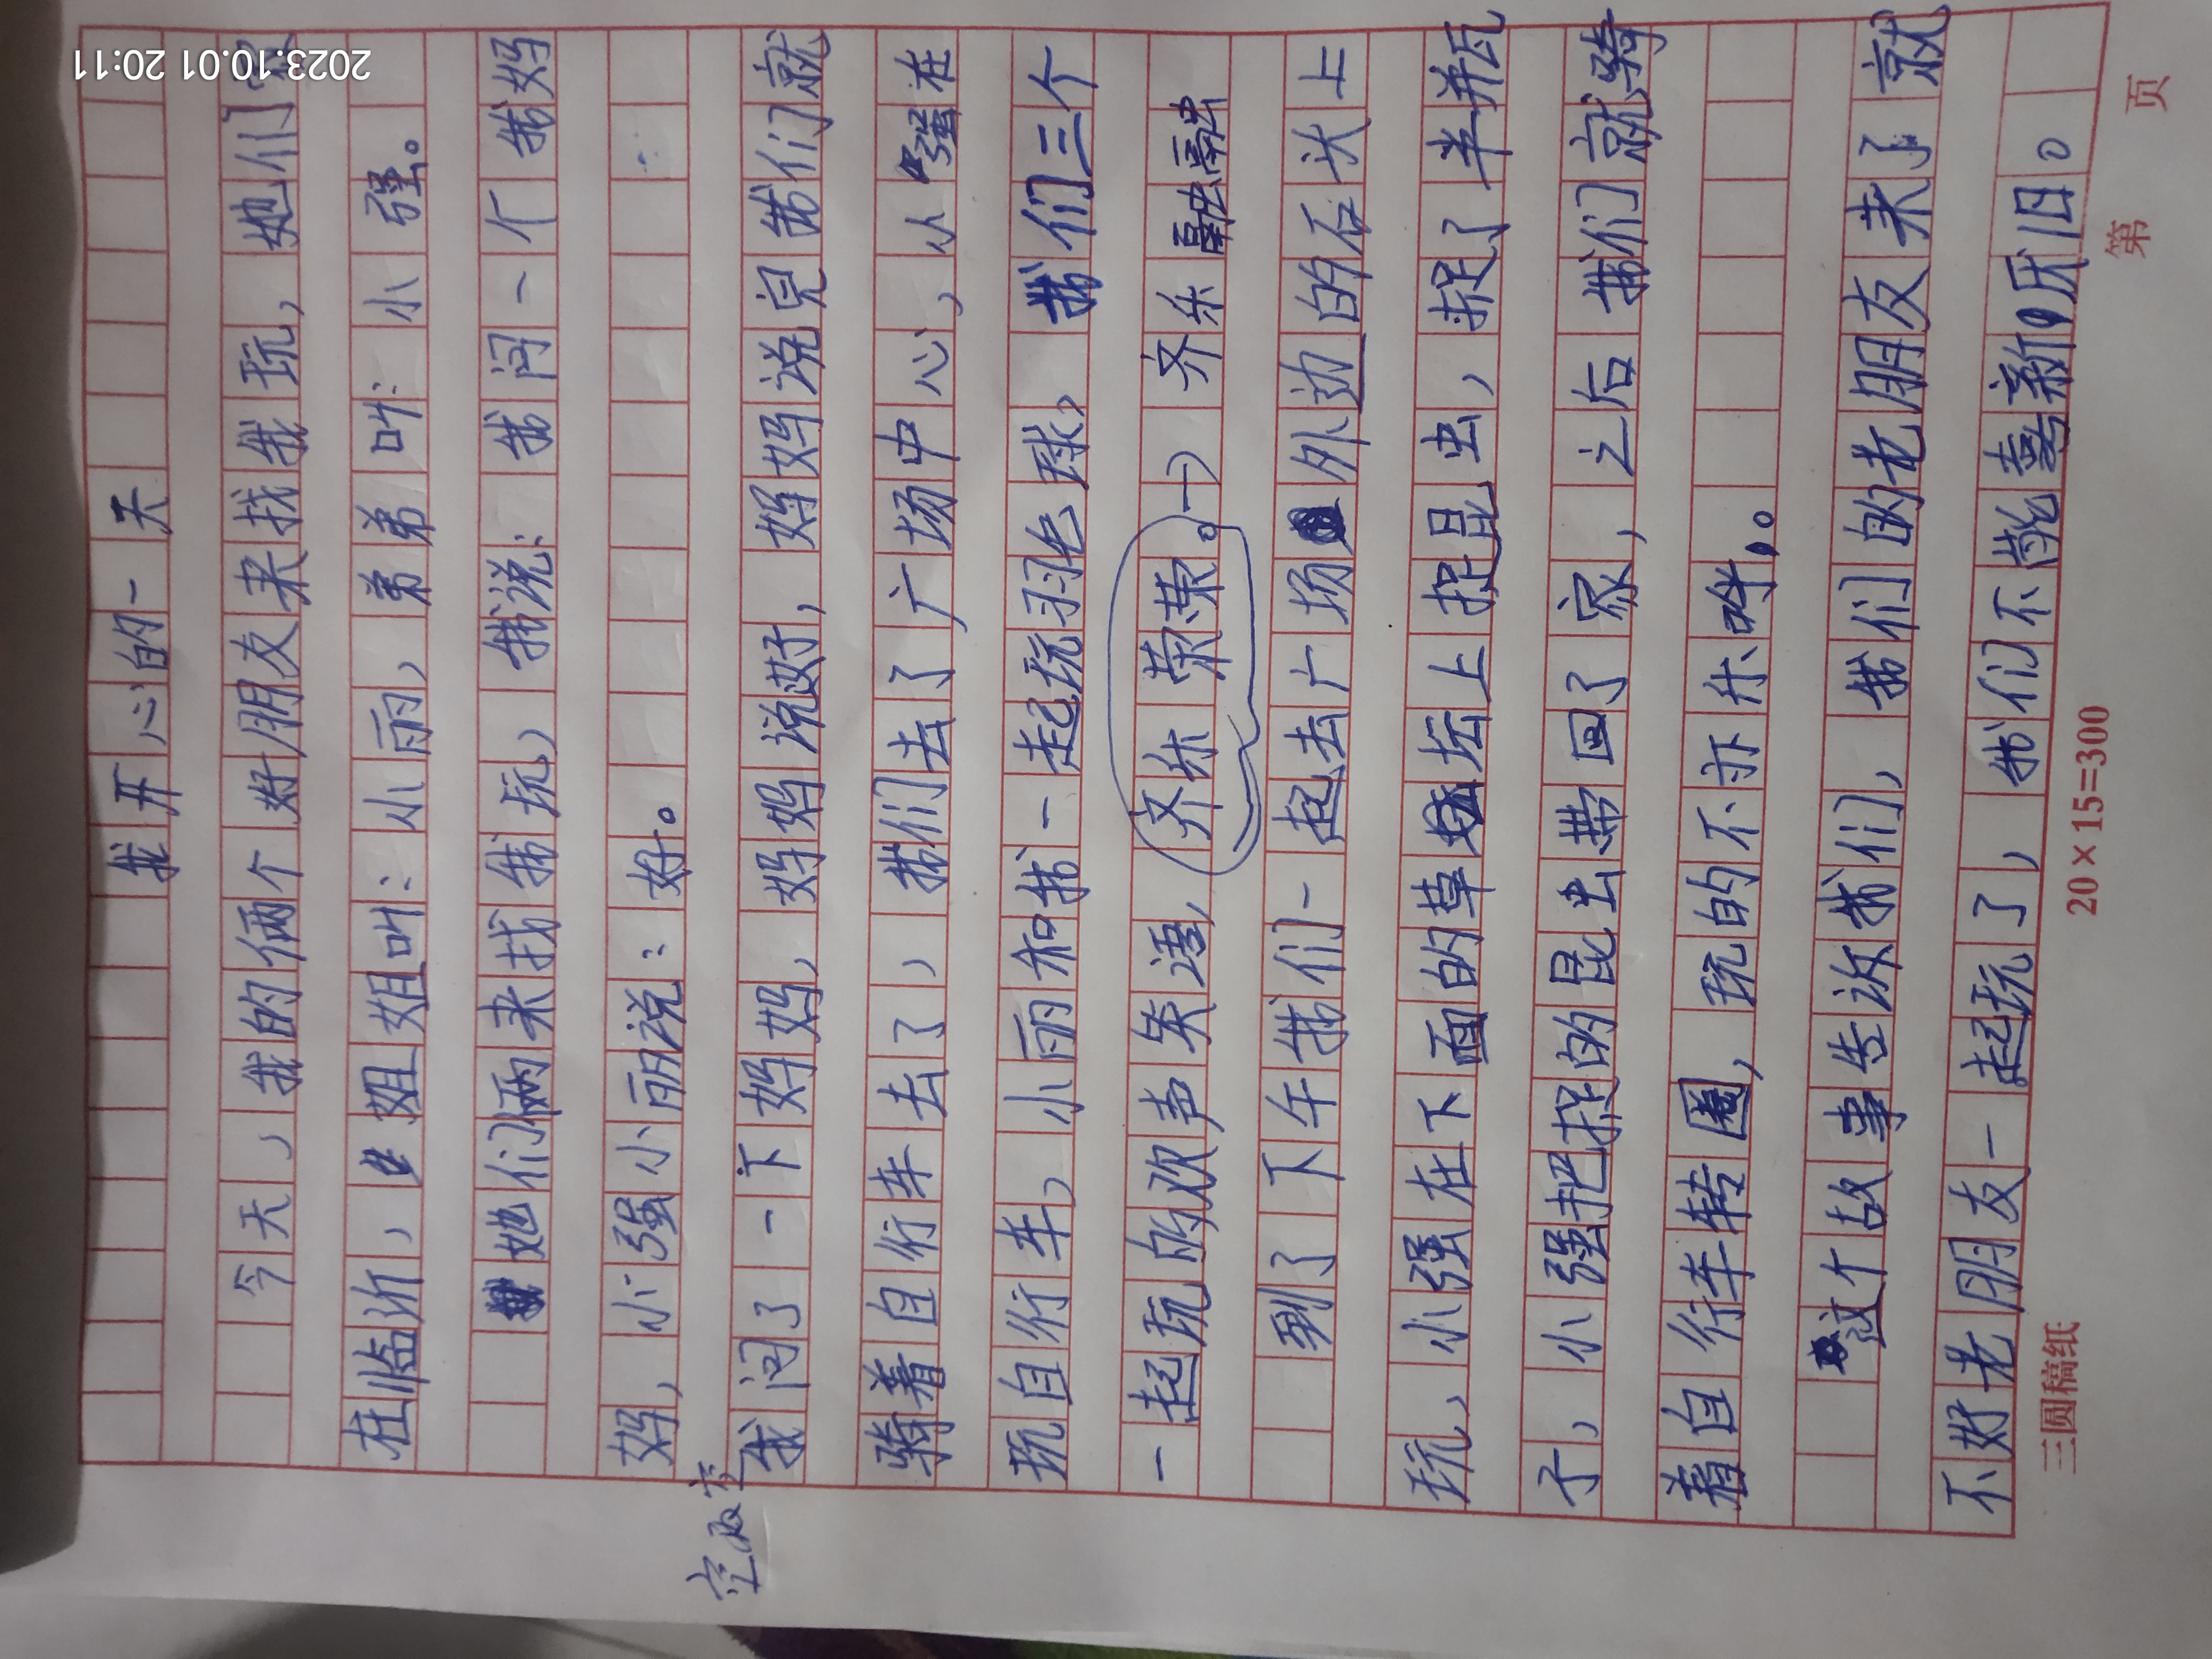 2023.10.01 20:11
我开心的一天
今天，我的俩个好朋友来找我玩，她们家
在临沂，姐姐叫：小丽，弟弟叫：小强。
她们俩来找我玩，我说：我问一个我妈
妈，小强小丽说：好。
空两字
我问了一下妈妈，妈妈说好，妈妈说完我们就
骑着自行车去了，我们去了广场中心，小强在
玩自行车，小丽和我一起玩羽毛球，我们三个
一起玩的欢声笑语，齐乐荣荣。→齐乐融融
到了下午我们一起去广场外边的石头上
玩，小强在下面的草坛上捉昆虫，捉了半并瓦
子，小强把捉的昆虫带回了家，之后我们就骑
着自行车转圈，玩的不亦乐呼。
这个故事告诉我们，我们的老朋友来了就
不好老朋友一起玩了，我们不能喜新厌旧。
三圆稿纸
20×15=300
第 页